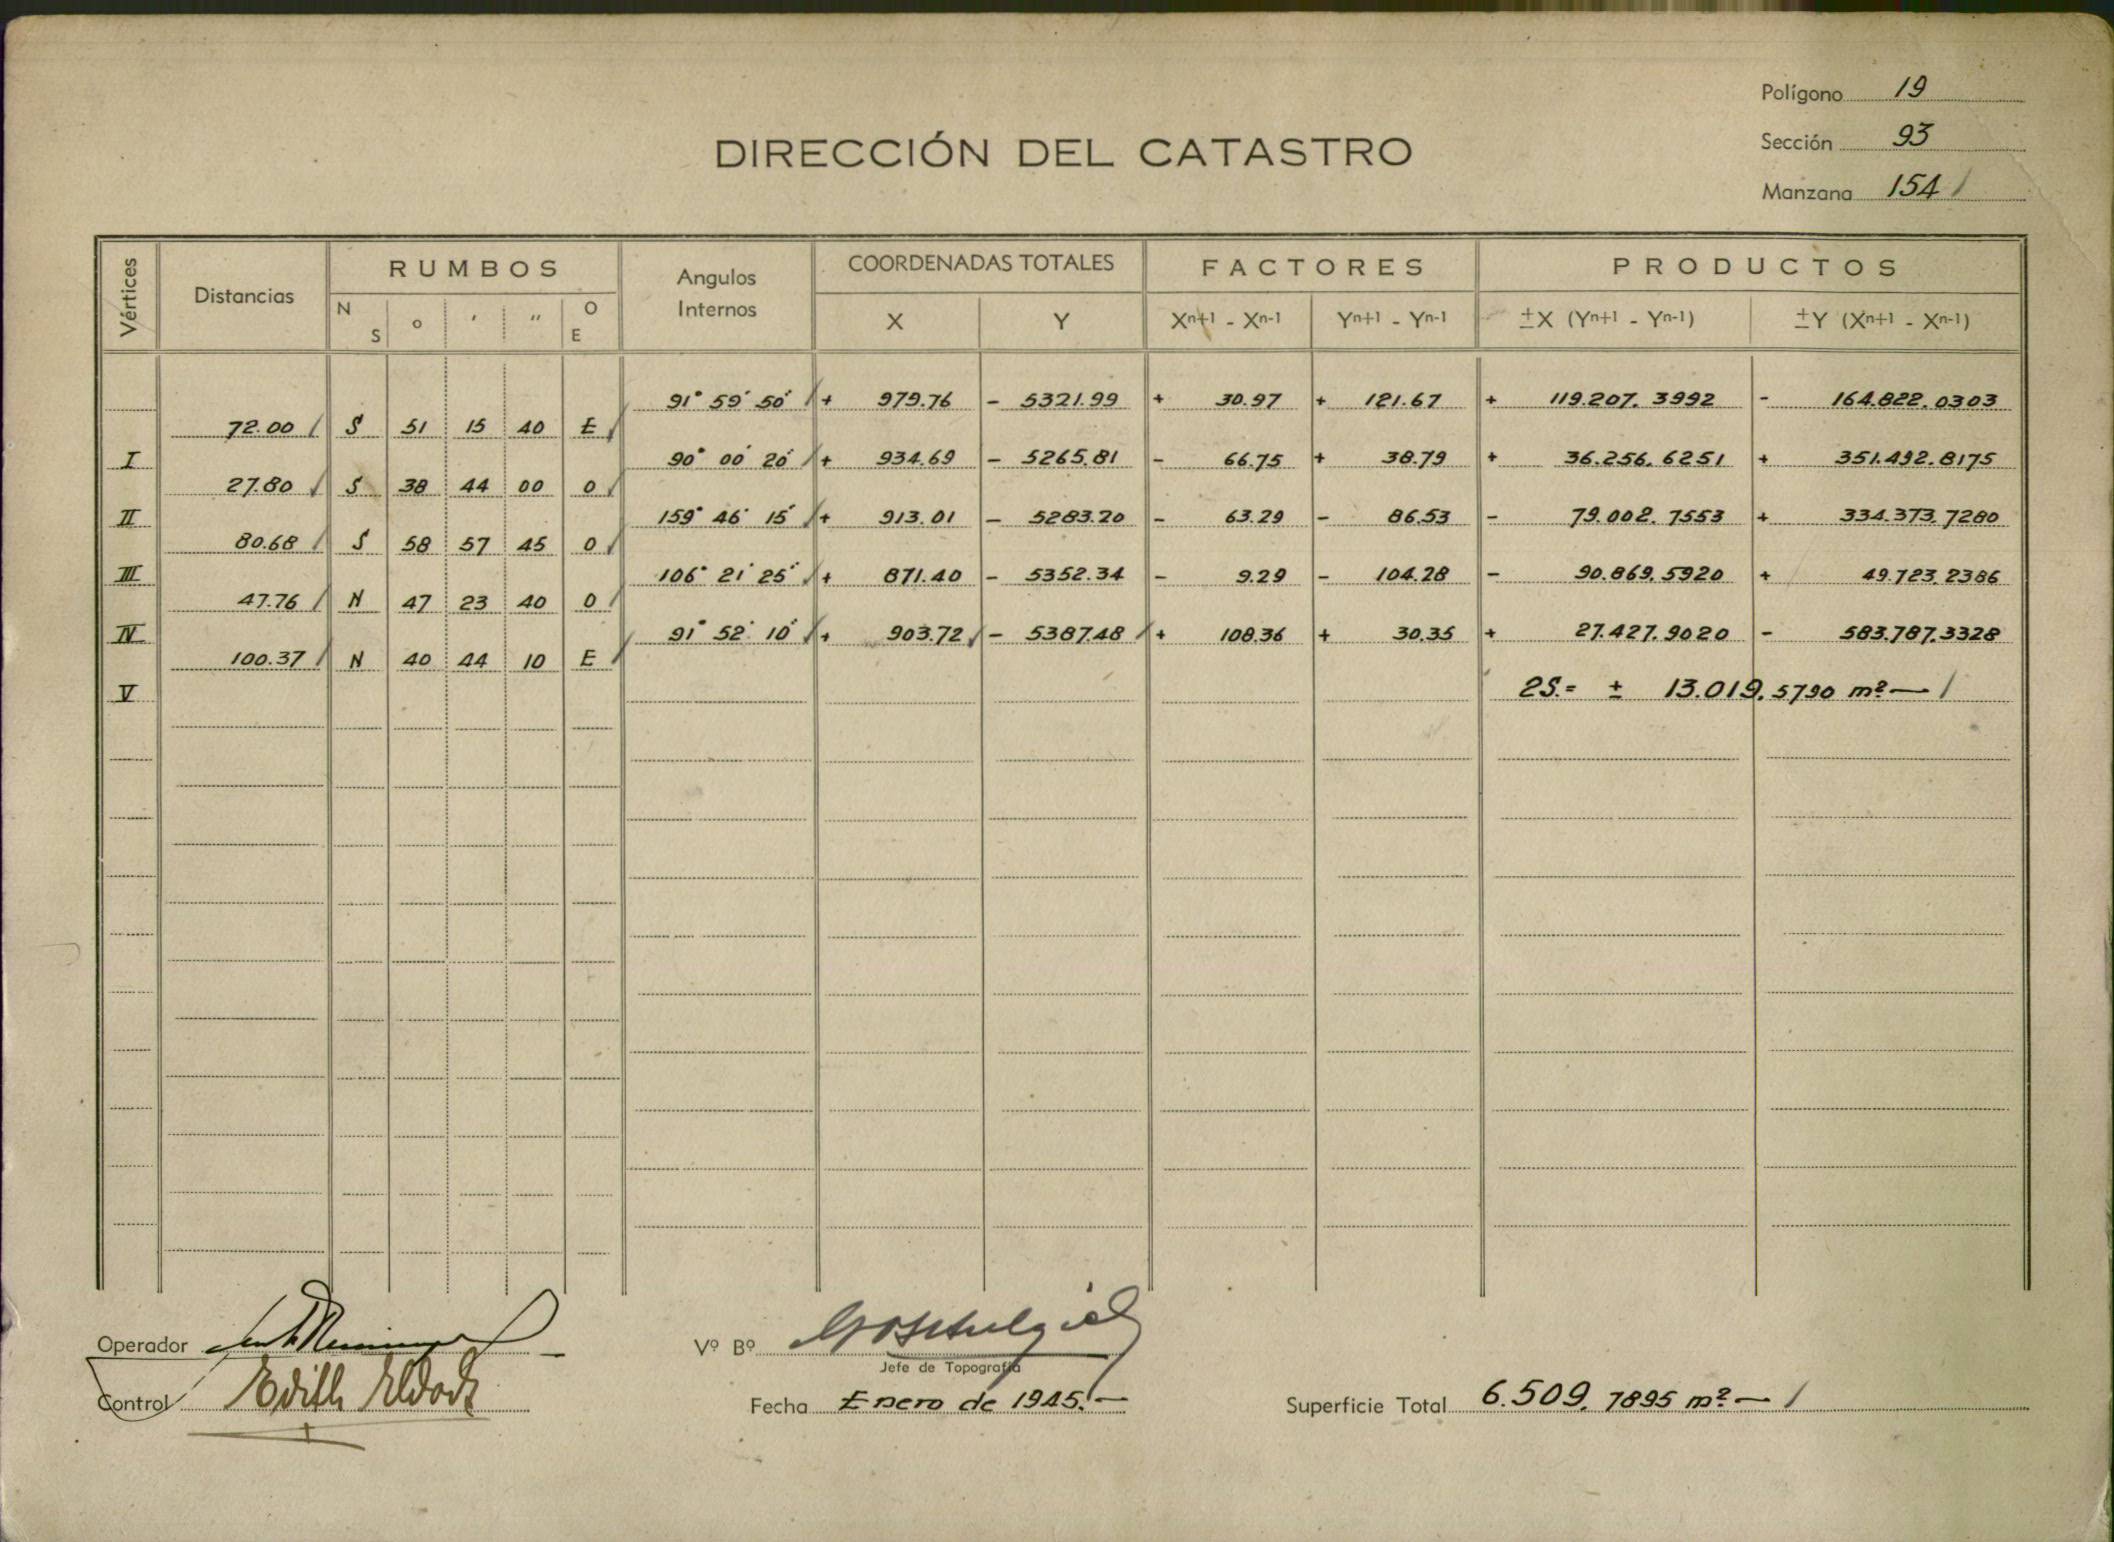 Polígono 19
DIRECCIÓN DEL CATASTRO
Sección 93
Manzana 154
Vértices Distancias RUMBOS N S o ' " O E Angulos Internos COORDENADAS TOTALES X Y FACTORES Xn+1 - Xn-1 Yn+1 - Yn-1 PRODUCTOS ±X (Yn+1 - Yn-1) ±Y (Xn+1 - Xn-1)
91° 59' 50" + 979.76 - 5321.99 + 30.97 + 121.67 + 119.207.3992 - 164.822.0303
72.00 S 51 15 40 E
I 90° 00' 20" + 934.69 - 5265.81 - 66.75 + 38.79 + 36.256.6251 + 351.492.8175
27.80 S 38 44 00 O
II 159° 46' 15" + 913.01 - 5283.20 - 63.29 - 86.53 - 79.002.7553 + 334.373.7280
80.68 S 58 57 45 O
III 106° 21' 25" + 871.40 - 5352.34 - 9.29 - 104.28 - 90.869.5920 + 49.723.2386
47.76 N 47 23 40 O
IV 91° 52' 10" + 903.72 - 5387.48 + 108.36 + 30.35 + 27.427.9020 - 583.787.3328
100.37 N 40 44 10 E
V 2S.= ± 13.019.5790 m²
Operador
Vº Bº
Jefe de Topografía
Control Edith
Fecha Enero de 1945.-
Superficie Total 6.509.7895 m²